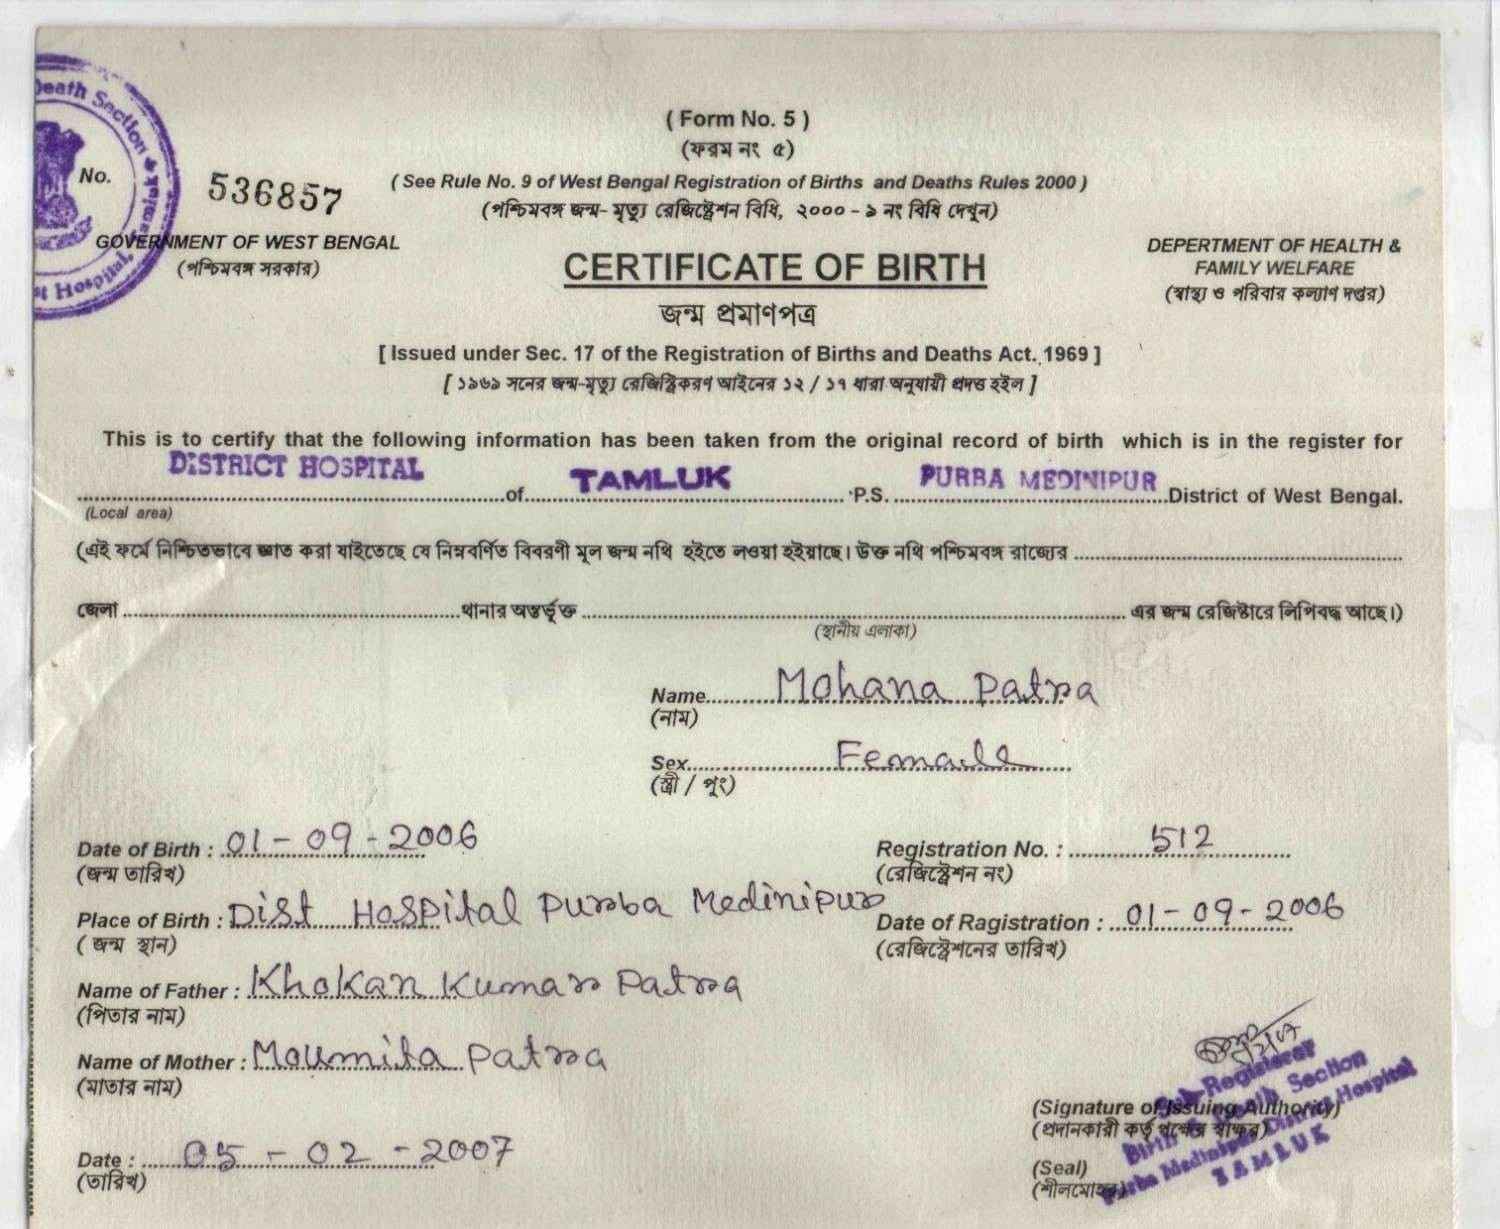 Death Section ✦ Tamluk
t Hospital,
( Form No. 5 )
(ফরম নং ৫)
No. 536857
( See Rule No. 9 of West Bengal Registration of Births and Deaths Rules 2000 )
(পশ্চিমবঙ্গ জন্ম- মৃত্যু রেজিস্ট্রেশন বিধি, ২০০০ - ৯ নং বিধি দেখুন)
GOVERNMENT OF WEST BENGAL
(পশ্চিমবঙ্গ সরকার)
CERTIFICATE OF BIRTH
জন্ম প্রমাণপত্র
DEPERTMENT OF HEALTH &
FAMILY WELFARE
(স্বাস্থ্য ও পরিবার কল্যাণ দপ্তর)
[ Issued under Sec. 17 of the Registration of Births and Deaths Act. 1969 ]
[ ১৯৬৯ সনের জন্ম-মৃত্যু রেজিস্ট্রিকরণ আইনের ১২ / ১৭ ধারা অনুযায়ী প্রদত্ত হইল ]
This is to certify that the following information has been taken from the original record of birth which is in the register for
DISTRICT HOSPITAL of TAMLUK P.S. PURBA MEDINIPUR District of West Bengal.
(Local area)
(এই ফর্মে নিশ্চিতভাবে জ্ঞাত করা যাইতেছে যে নিম্নবর্ণিত বিবরণী মূল জন্ম নথি হইতে লওয়া হইয়াছে। উক্ত নথি পশ্চিমবঙ্গ রাজ্যের
জেলা থানার অন্তর্ভূক্ত এর জন্ম রেজিষ্টারে লিপিবদ্ধ আছে।)
(স্থানীয় এলাকা)
Name Mohana Patra
(নাম)
Sex Femalle
(স্ত্রী / পুং)
Date of Birth : 01 - 09 - 2006
(জন্ম তারিখ)
Registration No. : 512
(রেজিস্ট্রেশন নং)
Place of Birth : Dist Hospital Purba Medinipur
( জন্ম স্থান)
Date of Ragistration : 01 - 09 - 2006
(রেজিস্ট্রেশনের তারিখ)
Name of Father : Khokan Kumar Patra
(পিতার নাম)
Name of Mother : Moumita Patra
(মাতার নাম)
Date : 05 - 02 - 2007
(তারিখ)
Sub-Registrar
Birth & Death Section
Purba Medinipur District Hospital
TAMLUK
(Signature of Issuing Authority)
(প্রদানকারী কর্তৃপক্ষের স্বাক্ষর)
(Seal)
(শীলমোহর)